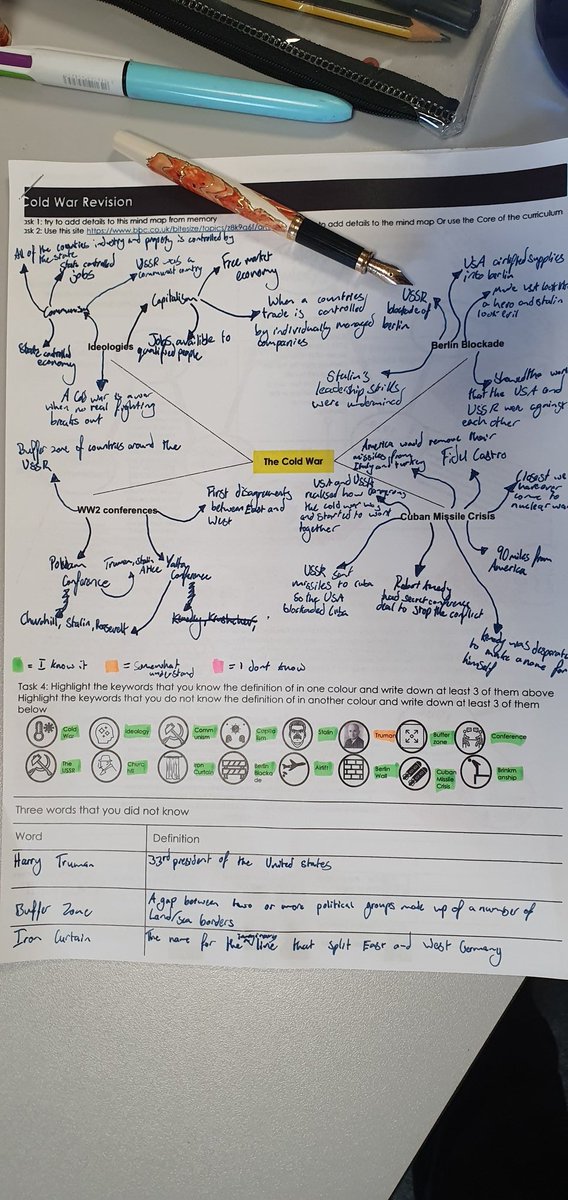 Cold War Revision
ask 1: try to add details to this mind map from memory
ask 2: Use this site https://www.bbc.co.uk/bitesize/topics/z8k9q6f/
to add details to the mind map Or use the Core of the curriculum
All of the countries industry and property is controlled by
the state
State controlled
jobs
USSR was a
communist country
Free market
economy
Communism
Capitalism
State controlled
economy
Ideologies
Jobs available to
qualified people
When a countries
trade is controlled
by individually managed
companies
A Cold war is a war
when no real fighting
breaks out
USSR
blockade of
berlin
USA airlifted supplies
into berlin
made
look like
a hero and stalin
look evil
Berlin Blockade
Stalin's
leadership skills
were undermined
Showed the
that the USA and
USSR were against
each other
The Cold War
Buffer zone of countries around the
USSR
WW2 conferences
First disagreements
between East and
West
Potsdam
Conference
Truman, Stalin
Yalta
Conference
Churchill, Stalin, Roosevelt
America would remove their
missiles from
Italy and turkey
Fidel Castro
USA and USSR
realised how dangerous
the cold war was
and started to work
together
Closest we
have ever
come to
nuclear war
Cuban Missile Crisis
90 miles from
America
USSR sent
missiles to cuba
so the USA
blockaded Cuba
Robert
had secret conference
deal to stop the conflict
was desperate
to make a name for
himself
= I know it
= Somewhat
understand
= I dont know
Task 4: Highlight the keywords that you know the definition of in one colour and write down at least 3 of them above
Highlight the keywords that you do not know the definition of in another colour and write down at least 3 of them
below
Cold
War
Ideology
Comm
unism
Capita
lism
Stalin
Truman
Buffer
zone
Conference
The
USSR
Churc
hill
Iron
Curtain
Berlin
Blocka
de
Airlift
Berlin
Wall
Cuban
Missile
Crisis
Brinkm
anship
Three words that you did not know
Word
Definition
Harry Truman
33rd president of the United States
Buffer Zone
A gap between two or more political groups made up of a number of
Land/sea borders
Iron Curtain
The name for the imaginary line that split East and West Germany